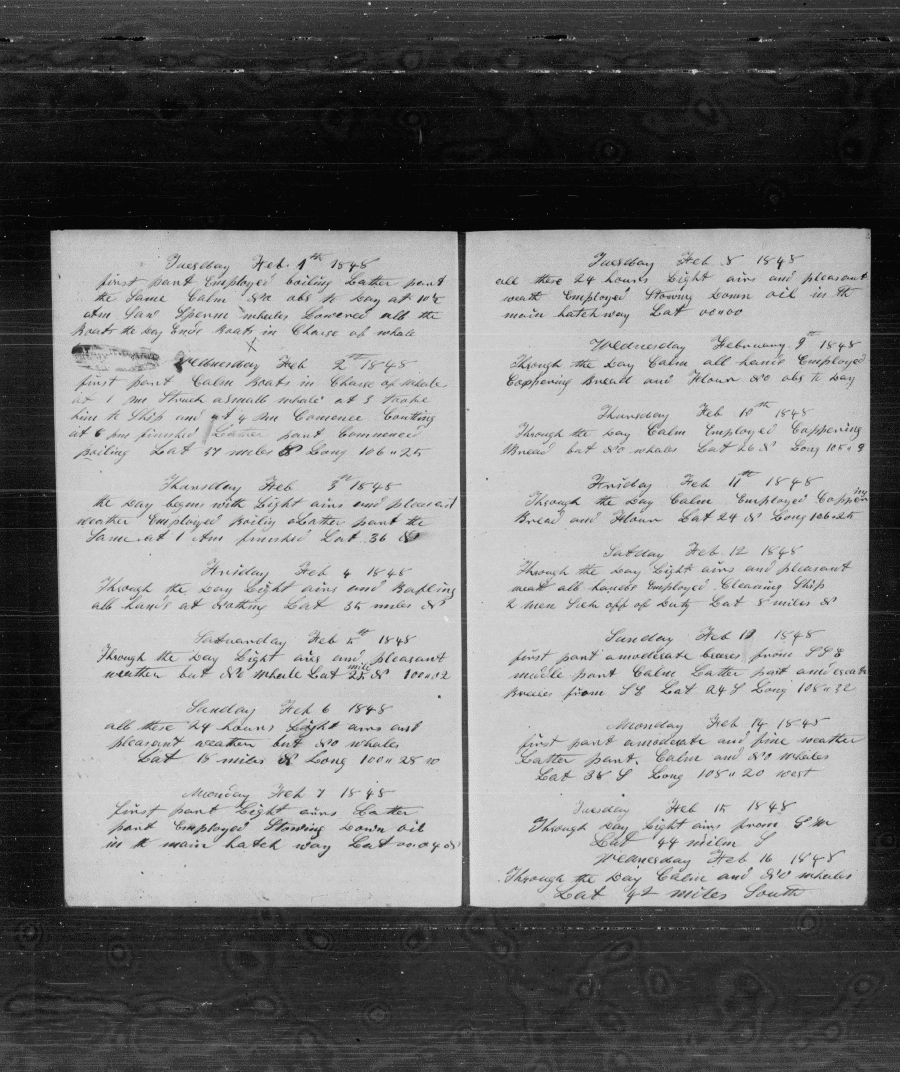 Tuesday Feb. 1th 1848
first part Employed boiling Latter part
the Same Calm & No obs to Day at 10
Am Saw Sperm whales Lowered all the
Boats the Day Ends Boats in Chase of whale
X
Wednesday Feb 2th 1848
first part Calm Boats in Chase of whale
at 1 Pm Struck a Small whale at 3 tooke
him to Ship and at 4 Pm Comence Coutting
at 6 pm finished Latter part Commenced
Boiling Lat 57 miles N Long 106 " 25
Thursday Feb 3rd 1848
the Day begins with Light airs and pleasant
weather Employed Boiling Latter part the
Same at 1 Am finished Lat 36 N
Friday Feb 4 1848
Through the Day Light airs and
all hands at Nothing Lat 35 miles N
Satuarday Feb 5th 1848
Through the Day Light airs and pleasant
weather but No whale Lat 25 mile N 100 " 02
Sunday Feb 6 1848
all these 24 hours Light airs and
pleasant weather but No whales
Lat 18 miles N Long 100 " 28
Monday Feb 7 1848
first part Light airs Latter
part Employed Stowing Down oil
in th main hatch way Lat 00 " 04 N
Tuesday Feb 8 1848
all these 24 hours Light airs and pleasant
weath Employed Stowing Down oil in th
main hatch way Lat 00 " 00
Wednesday February 9th 1848
Through the Day Calm all hands Employed
Coppering Bread and Flour No obs to Day
Thursday Feb 10th 1848
Through the Day Calm Employed Coppering
Bread but No whales Lat 26 N Long 105 " 9
Friday Feb 11th 1848
Through the Day Calm Employed Coppering
Bread and Flour Lat 24 N Long 106 " 25
Satday Feb 12 1848
Through the Day Light airs and pleasant
weat all hands Employed Cleaning Ship
2 men Sick off of Duty Lat 8 miles N
Sunday Feb 13 1848
first part a moderate breses from SSE
midle part Calm Latter part
Breeses from SE Lat 24 S Long 108 " 32
Monday Feb 14 1848
first part a moderate and fine weather
Latter part Calm and No whales
Lat 38 S Long 108 " 20 west
Tuesday Feb 15 1848
Through Day Light airs from
Lat 44 miles S
Wednesday Feb 16 1848
Through the Day Calm and No whales
Lat 42 miles South